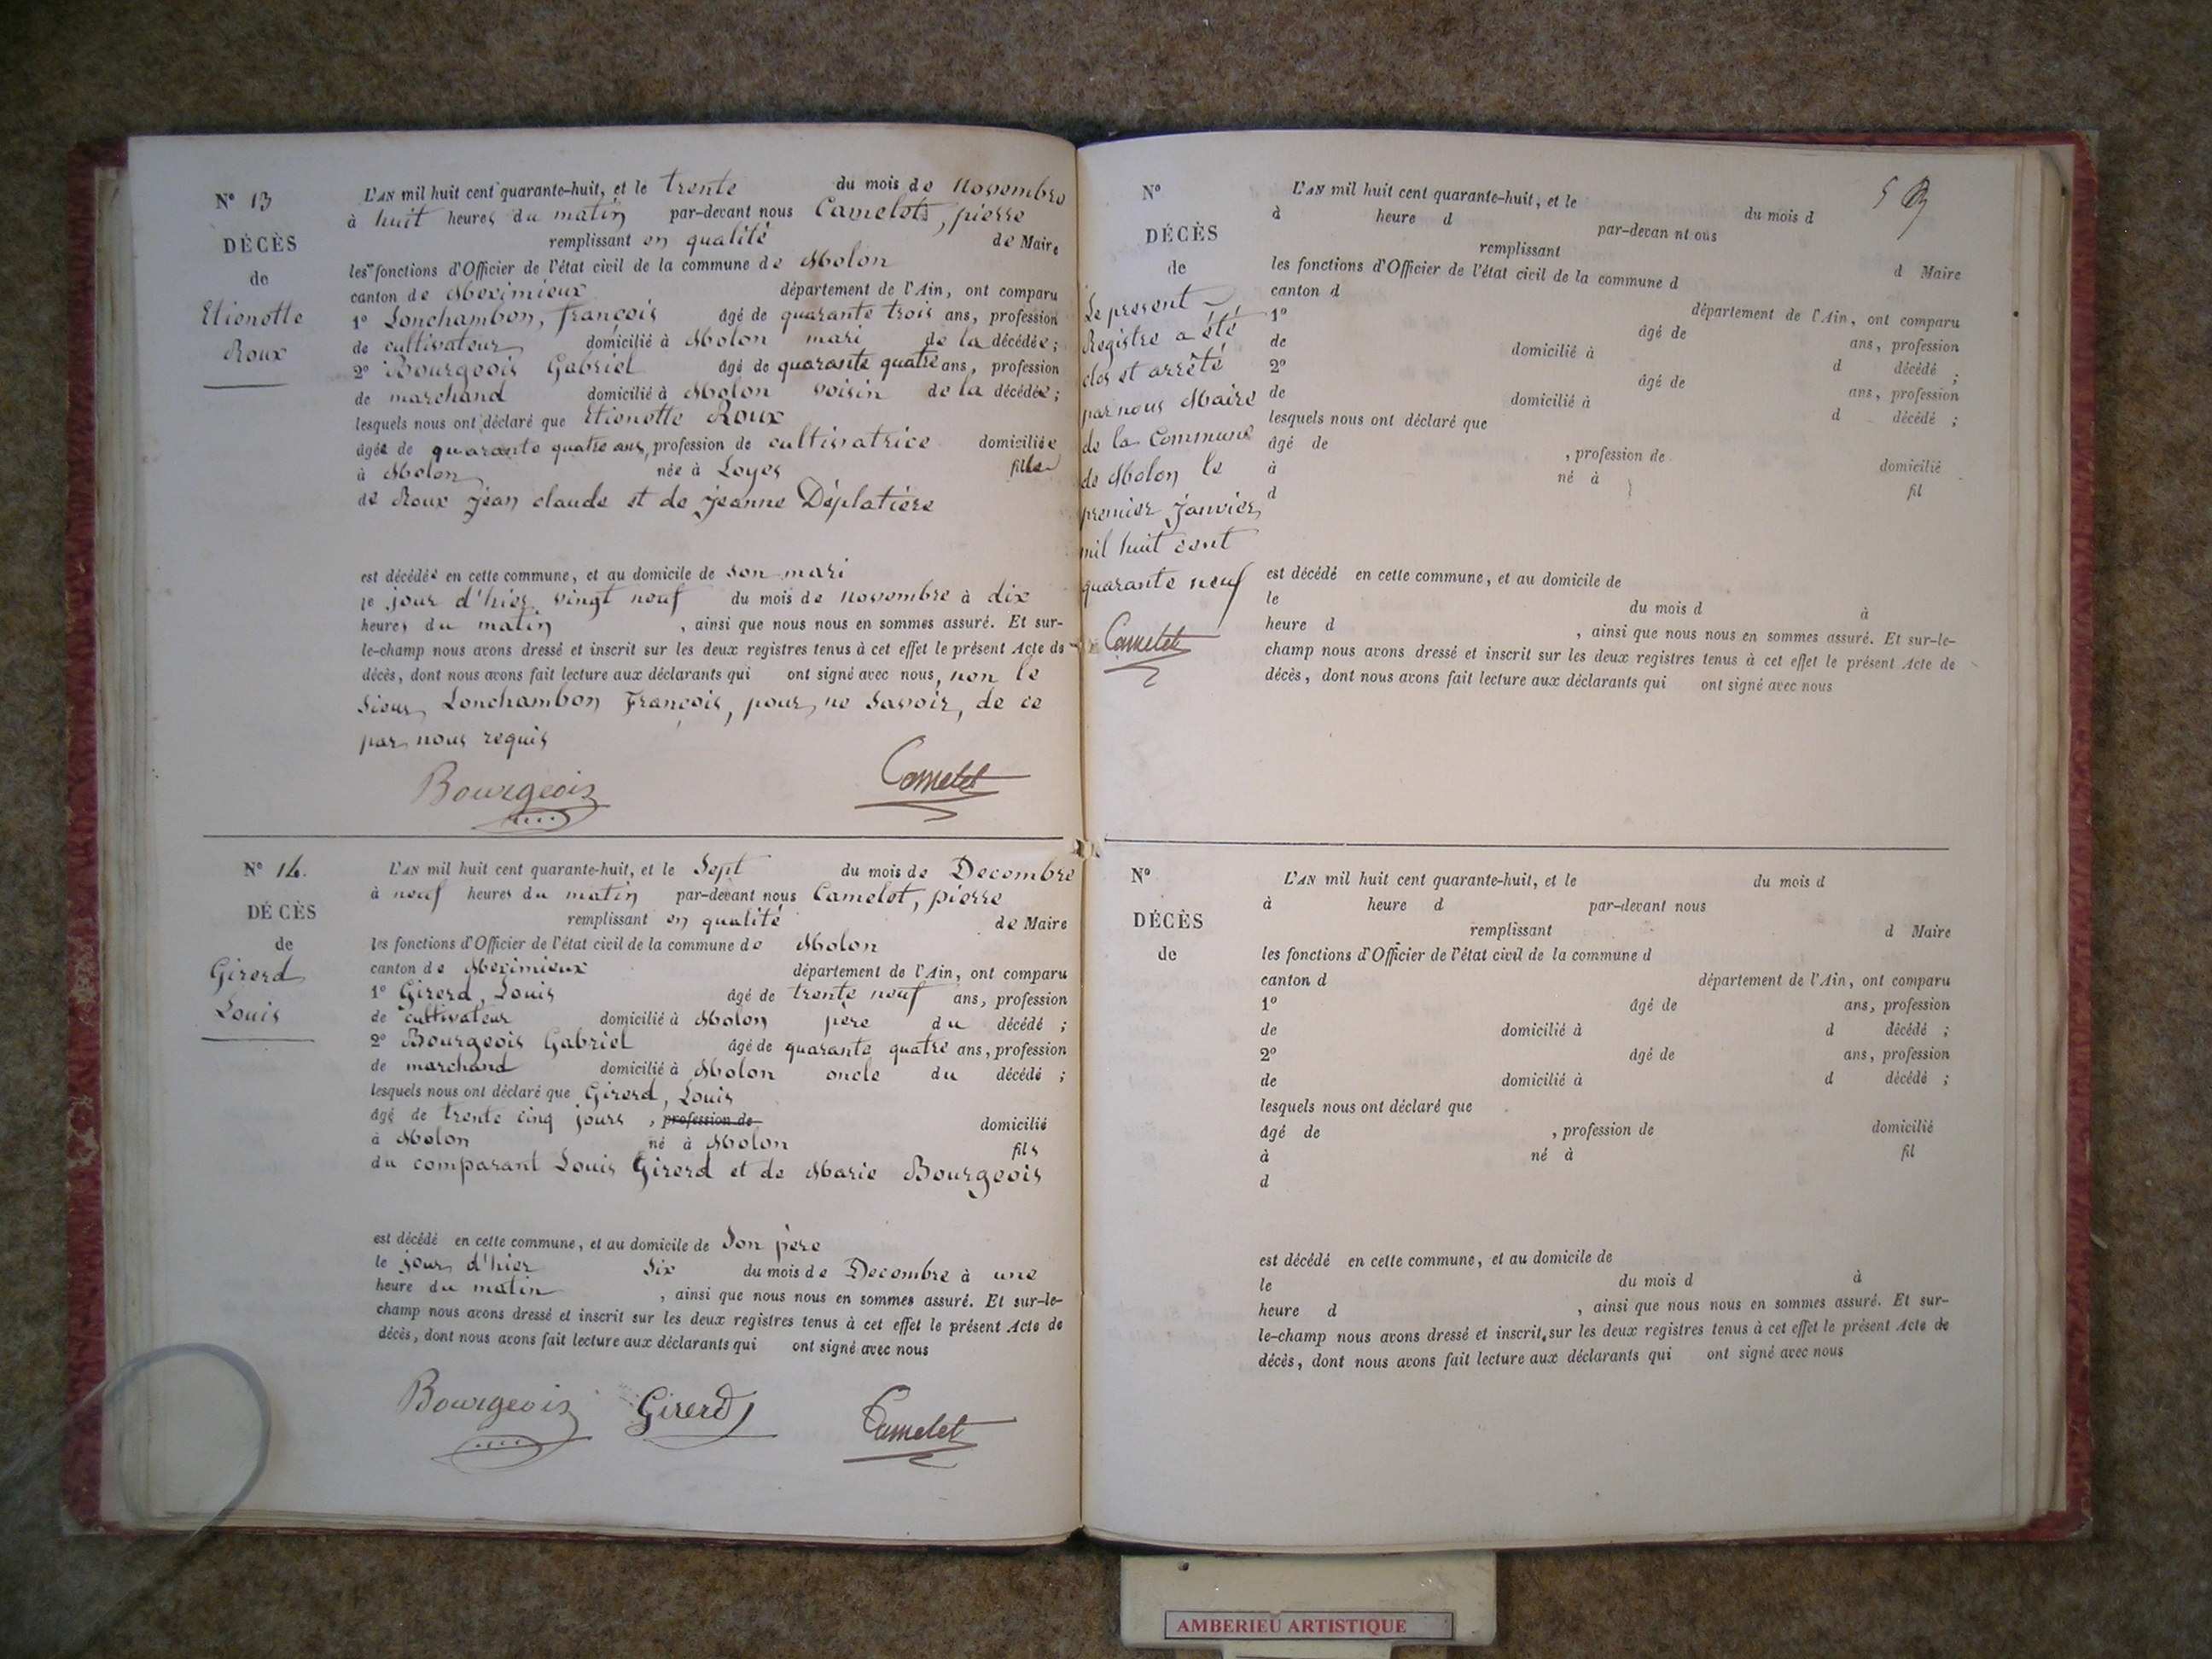 N° 13
DÉCÈS
de
Etienette
Roux
L'AN mil huit cent quarante-huit, et le trente du mois de Novembre
à huit heures du matin par-devant nous Camelet, pierre
remplissant en qualité de Maire
les fonctions d'Officier de l'état civil de la commune de Molon
canton de Meximieux département de l'Ain, ont comparu
1° Lonchambon, françois âgé de quarante trois ans, profession
de cultivateur domicilié à Molon mari de la décédée ;
2° Bourgeois Gabriel âgé de quarante quatre ans, profession
de marchand domicilié à Molon voisin de la décédée ;
lesquels nous ont déclaré que Etienette Roux
âgée de quarante quatre ans, profession de cultivatrice domiciliée
à Molon née à Loyes fille
de Roux jean claude et de jeanne Déplatière
est décédée en cette commune, et au domicile de son mari
le jour d'hier vingt neuf du mois de novembre à dix
heures du matin , ainsi que nous nous en sommes assuré. Et sur-
le-champ nous avons dressé et inscrit sur les deux registres tenus à cet effet le présent Acte de
décès, dont nous avons fait lecture aux déclarants qui ont signé avec nous, non le
Sieur Lonchambon François, pour ne savoir, de ce
par nous requis
Bourgeois Camelet
N° 14.
DÉCÈS
de
Girerd
Louis
L'AN mil huit cent quarante-huit, et le Sept du mois de Decembre
à neuf heures du matin par-devant nous Camelet, pierre
remplissant en qualité de Maire
les fonctions d'Officier de l'état civil de la commune de Molon
canton de Meximieux département de l'Ain, ont comparu
1° Girerd, Louis âgé de trente neuf ans, profession
de cultivateur domicilié à Molon père du décédé ;
2° Bourgeois Gabriel âgé de quarante quatre ans, profession
de marchand domicilié à Molon oncle du décédé ;
lesquels nous ont déclaré que Girerd, Louis
âgé de trente cinq jours , profession de domicilié
à Molon né à Molon fils
du comparant Louis Girerd et de Marie Bourgeois
est décédé en cette commune, et au domicile de Son père
le jour d'hier Six du mois de Decembre à une
heure du matin , ainsi que nous nous en sommes assuré. Et sur-le-
champ nous avons dressé et inscrit sur les deux registres tenus à cet effet le présent Acte de
décès, dont nous avons fait lecture aux déclarants qui ont signé avec nous
Bourgeois Girerd Camelet
N°
DÉCÈS
de
Le present
Registre a été
clos et arrêté
par nous Maire
de la Commune
de Molon le
premier Janvier,
mil huit cent
quarante neuf
Camelet
5
L'AN mil huit cent quarante-huit, et le du mois d
à heure d par-devan nt ous
remplissant d Maire
les fonctions d'Officier de l'état civil de la commune d
canton d département de l'Ain, ont comparu
1° âgé de ans, profession
de domicilié à d décédé ;
2° âgé de ans, profession
de domicilié à d décédé ;
lesquels nous ont déclaré que
âgé de , profession de domicilié
à né à fil
d
est décédé en cette commune, et au domicile de
le du mois d à
heure d , ainsi que nous nous en sommes assuré. Et sur-le-
champ nous avons dressé et inscrit sur les deux registres tenus à cet effet le présent Acte de
décès, dont nous avons fait lecture aux déclarants qui ont signé avec nous
N°
DÉCÈS
de
L'AN mil huit cent quarante-huit, et le du mois d
à heure d par-devant nous
remplissant d Maire
les fonctions d'Officier de l'état civil de la commune d
canton d département de l'Ain, ont comparu
1° âgé de ans, profession
de domicilié à d décédé ;
2° âgé de ans, profession
de domicilié à d décédé ;
lesquels nous ont déclaré que
âgé de , profession de domicilié
à né à fil
d
est décédé en cette commune, et au domicile de
le du mois d à
heure d , ainsi que nous nous en sommes assuré. Et sur-
le-champ nous avons dressé et inscrit sur les deux registres tenus à cet effet le présent Acte de
décès, dont nous avons fait lecture aux déclarants qui ont signé avec nous
AMBERIEU ARTISTIQUE